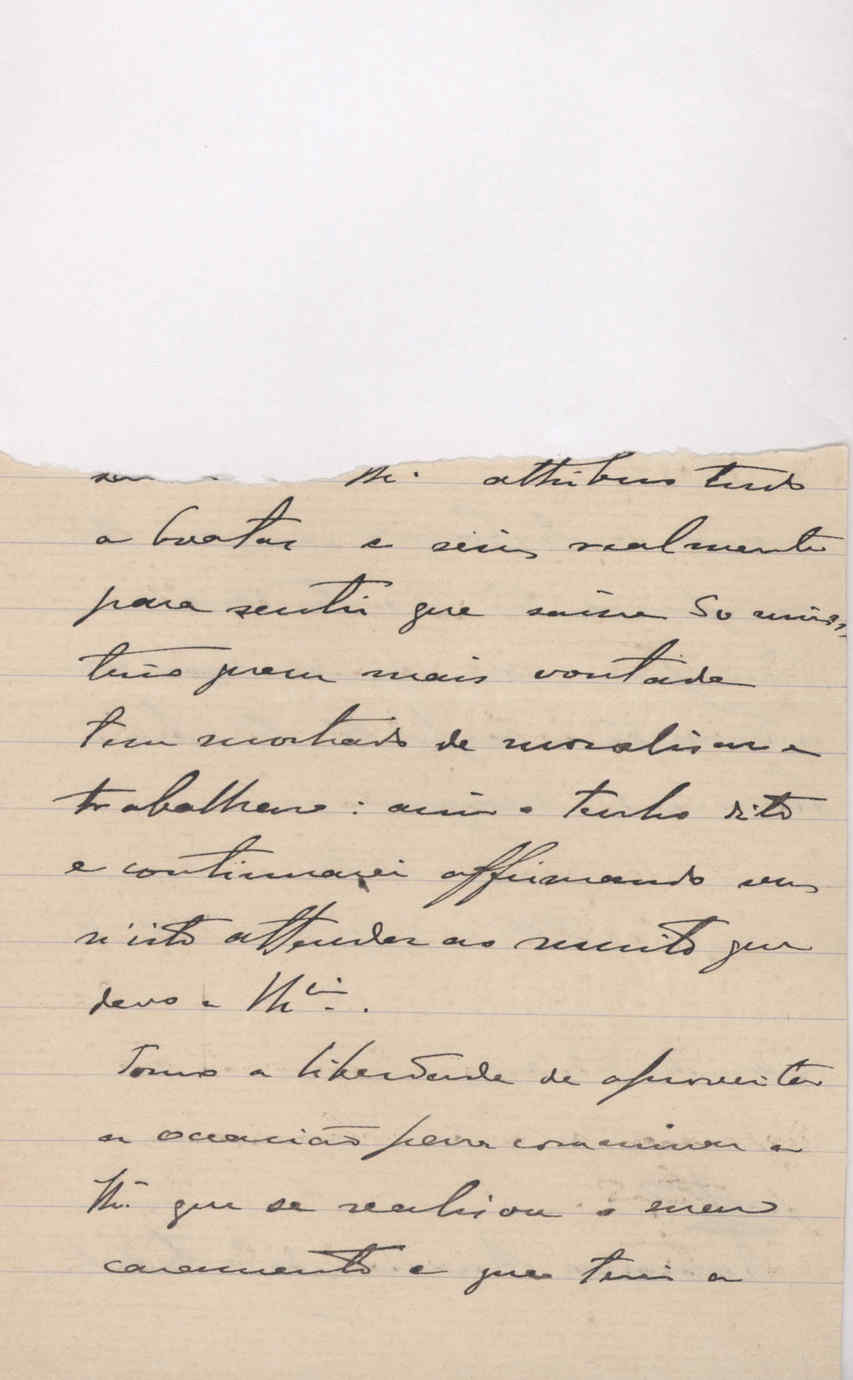 attribuo tudo
a boatos e sem realmente
para sentir que saisse do minis-
terio quem mais vontade
tem mostrado de moralisar e
trabalhar: assim o tenho dito
e continuarei affirmando sem
n'isto attender ao muito que
devo a
Tomo a liberdade de aproveitar
a occasião para communicar a
que se realisou o meu
casamento e que terei a